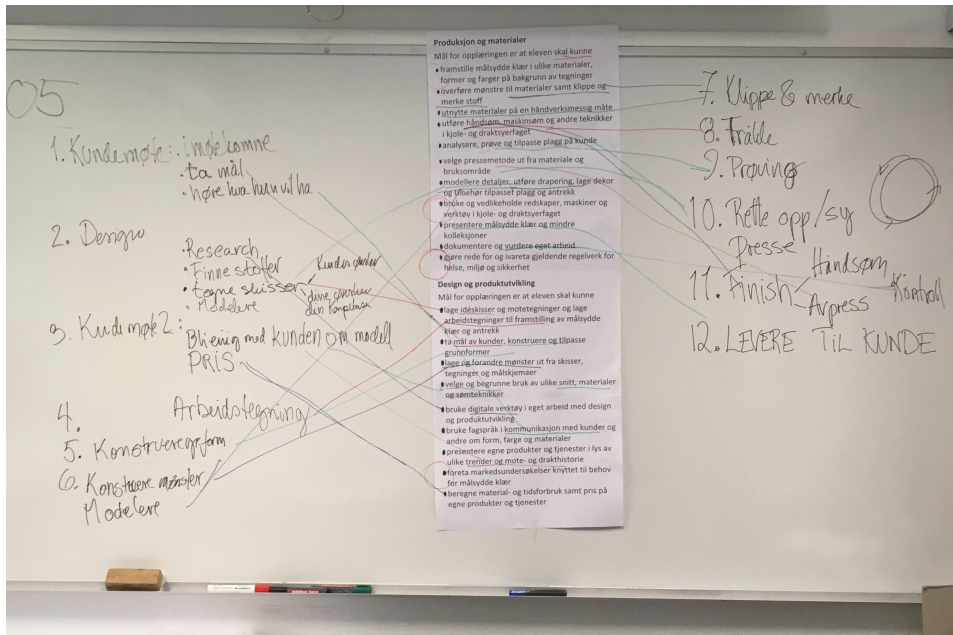 05
1. Kundemøte: · imøtekomne
· ta mål
· høre hva hun vil ha
2. Design
· Research
· Finne stoffer
· tegne skisser
· Modelere
Kundens ønsker
dine
din kompetanse
3. Kundemøte 2:
Bli enig med kunden om modell
PRIS
4. Arbeidstegning
5. Konstruere grform
6. Konstruere mønster
Modelere
Produksjon og materialer
Mål for opplæringen er at eleven skal kunne
• framstille målsydde klær i ulike materialer,
former og farger på bakgrunn av tegninger
• overføre mønstre til materialer samt klippe og
merke stoff
• utnytte materialer på en håndverksmessig måte
• utføre håndsøm, maskinsøm og andre teknikker
i kjole- og draktsyerfaget
• analysere, prøve og tilpasse plagg på kunde
• velge pressemetode ut fra materiale og
bruksområde
• modellere detaljer, utføre drapering, lage dekor
og tilbehør tilpasset plagg og antrekk
• bruke og vedlikeholde redskaper, maskiner og
verktøy i kjole- og draktsyerfaget
• presentere målsydde klær og mindre
kolleksjoner
• dokumentere og vurdere eget arbeid
• gjøre rede for og ivareta gjeldende regelverk for
helse, miljø og sikkerhet
Design og produktutvikling
Mål for opplæringen er at eleven skal kunne
• lage idéskisser og motetegninger og lage
arbeidstegninger til framstilling av målsydde
klær og antrekk
• ta mål av kunder, konstruere og tilpasse
grunnformer
• lage og forandre mønster ut fra skisser,
tegninger og målskjemaer
• velge og begrunne bruk av ulike snitt, materialer
og sømteknikker
• bruke digitale verktøy i eget arbeid med design
og produktutvikling
• bruke fagspråk i kommunikasjon med kunder og
andre om form, farge og materialer
• presentere egne produkter og tjenester i lys av
ulike trender og mote- og drakthistorie
• foreta markedsundersøkelser knyttet til behov
for målsydde klær
• beregne material- og tidsforbruk samt pris på
egne produkter og tjenester
7. Klippe & merke
8. Trålde
9. Prøving
10. Rette opp/sy
Presse
11. Finish
Håndsøm
Avpress
Kontroll
12. LEVERE TIL KUNDE